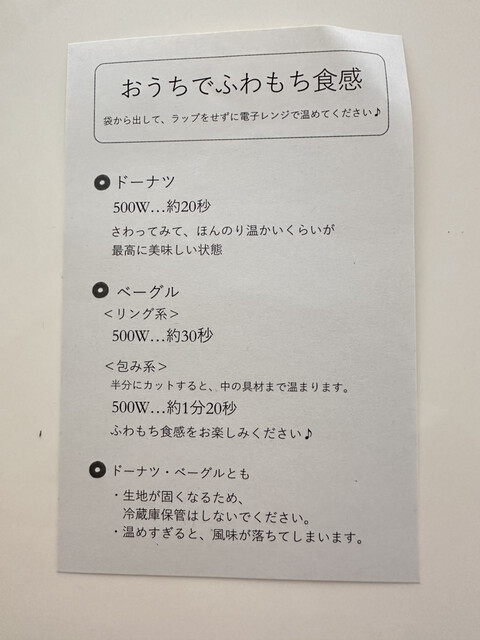 おうちでふわもち食感
袋から出して、ラップをせずに電子レンジで温めてください♪
ドーナツ
500W…約20秒
さわってみて、ほんのり温かいくらいが
最高に美味しい状態
ベーグル
＜リング系＞
500W…約30秒
＜包み系＞
半分にカットすると、中の具材まで温まります。
500W…約1分20秒
ふわもち食感をお楽しみください♪
ドーナツ・ベーグルとも
・生地が固くなるため、
冷蔵庫保管はしないでください。
・温めすぎると、風味が落ちてしまいます。